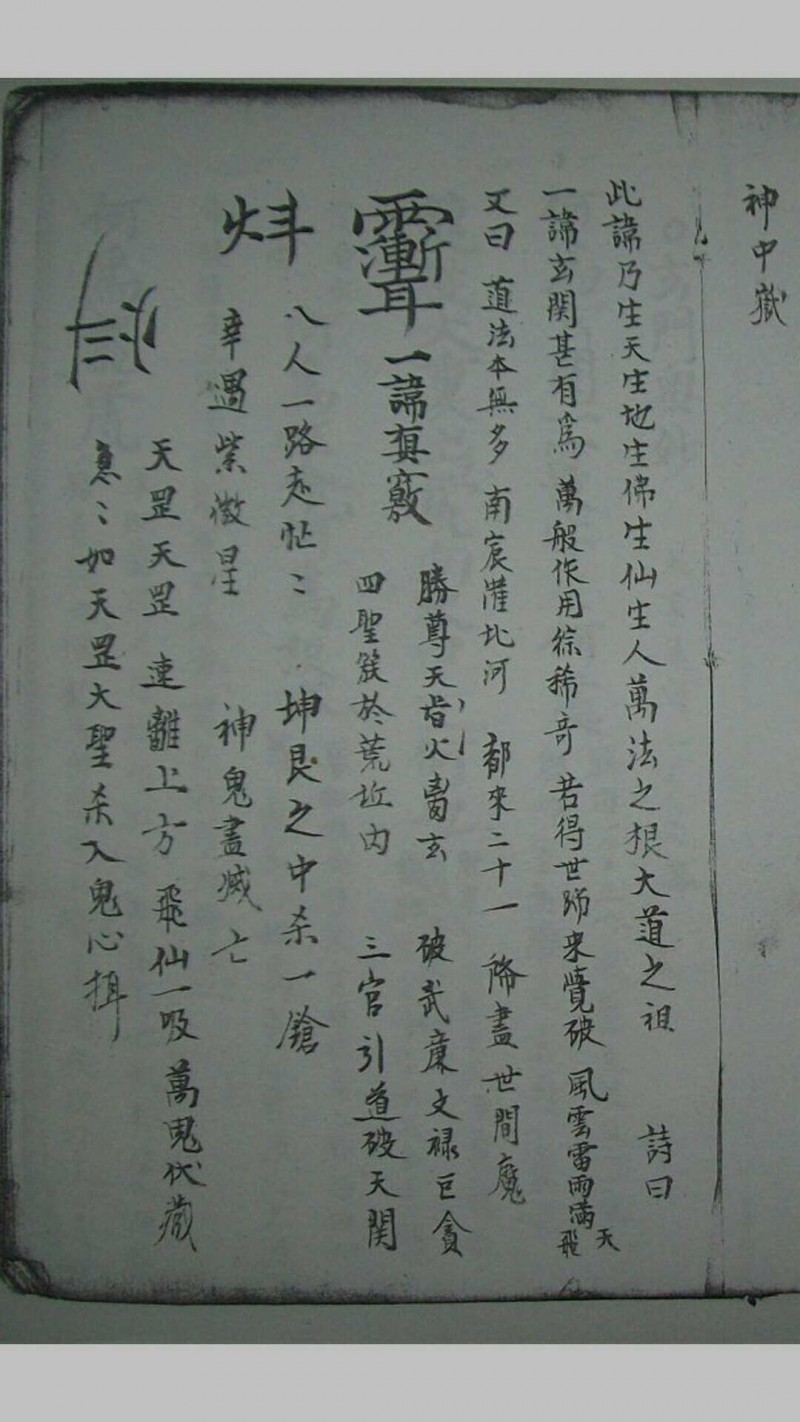 神中嶽
此諱乃生天生地生佛生仙生人萬法之根大道之祖 詩曰
一諱玄関甚有為 萬般作用緣稀奇 若得世師來覺破 風雲雷雨満天飛
又曰 道法本無多 南宸灌北河 都來二十一 降盡世間魔
一諱真竅
勝尊天 火 玄 破武廉文禄巨貪
四聖簇於荒坵内 三官引道破天関
八人一路走忙〻 坤艮之中杀一鎗
幸遇紫微星 神鬼盡滅亡
天罡天罡 速離上方 飛仙一吸 萬鬼伏藏
急〻如天罡大聖杀入鬼心